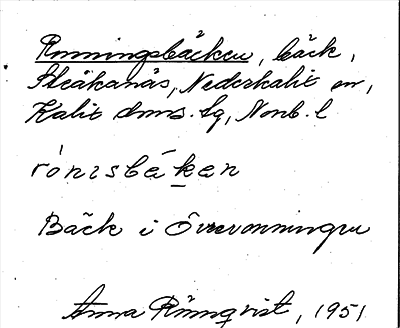 Rönningsbäcken, bäck,
Stråkanäs, Nederkalix sn,
Kalix dnms. lg, Nonb. l
rónɪsbɛ́ken
Bäck i Övrevonningen
Anna Rönnqvist, 1951